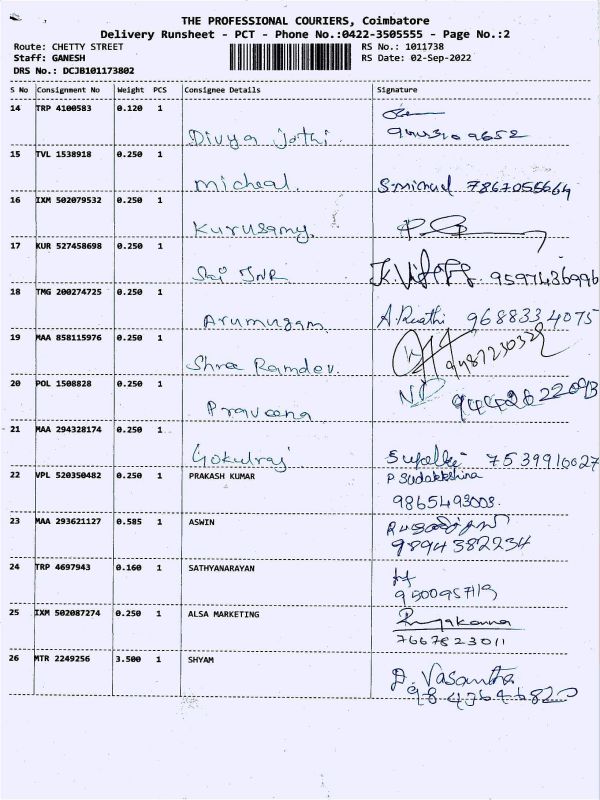 THE PROFESSIONAL COURIERS, Coimbatore
Delivery Runsheet - PCT - Phone No.:0422-3505555 - Page No.:2
Route: CHETTY STREET RS No.: 1011738
Staff: GANESH RS Date: 02-Sep-2022
DRS No.: DCJB101173802
S No Consignment No Weight PCS Consignee Details Signature
14 TRP 4100583 0.120 1
Divya jothi
15 TVL 1538918 0.250 1
micheal. 7867055664
16 IXM 502079532 0.250 1
Kurusamy.
17 KUR 527458698 0.250 1
Sai JNR 9597436996
18 TMG 200274725 0.250 1
Arumugam A. 9688334075
19 MAA 858115976 0.250 1
Shree Ramdev.
20 POL 1508828 0.250 1
Praveena
21 MAA 294328174 0.250 1
Gokulraj 7539910027
22 VPL 520350482 0.250 1 PRAKASH KUMAR
9865493003.
23 MAA 293621127 0.585 1 ASWIN
9894382234
24 TRP 4697943 0.160 1 SATHYANARAYAN
25 IXM 502087274 0.250 1 ALSA MARKETING
7667823011
26 MTR 2249256 3.500 1 SHYAM
D. Vasantha